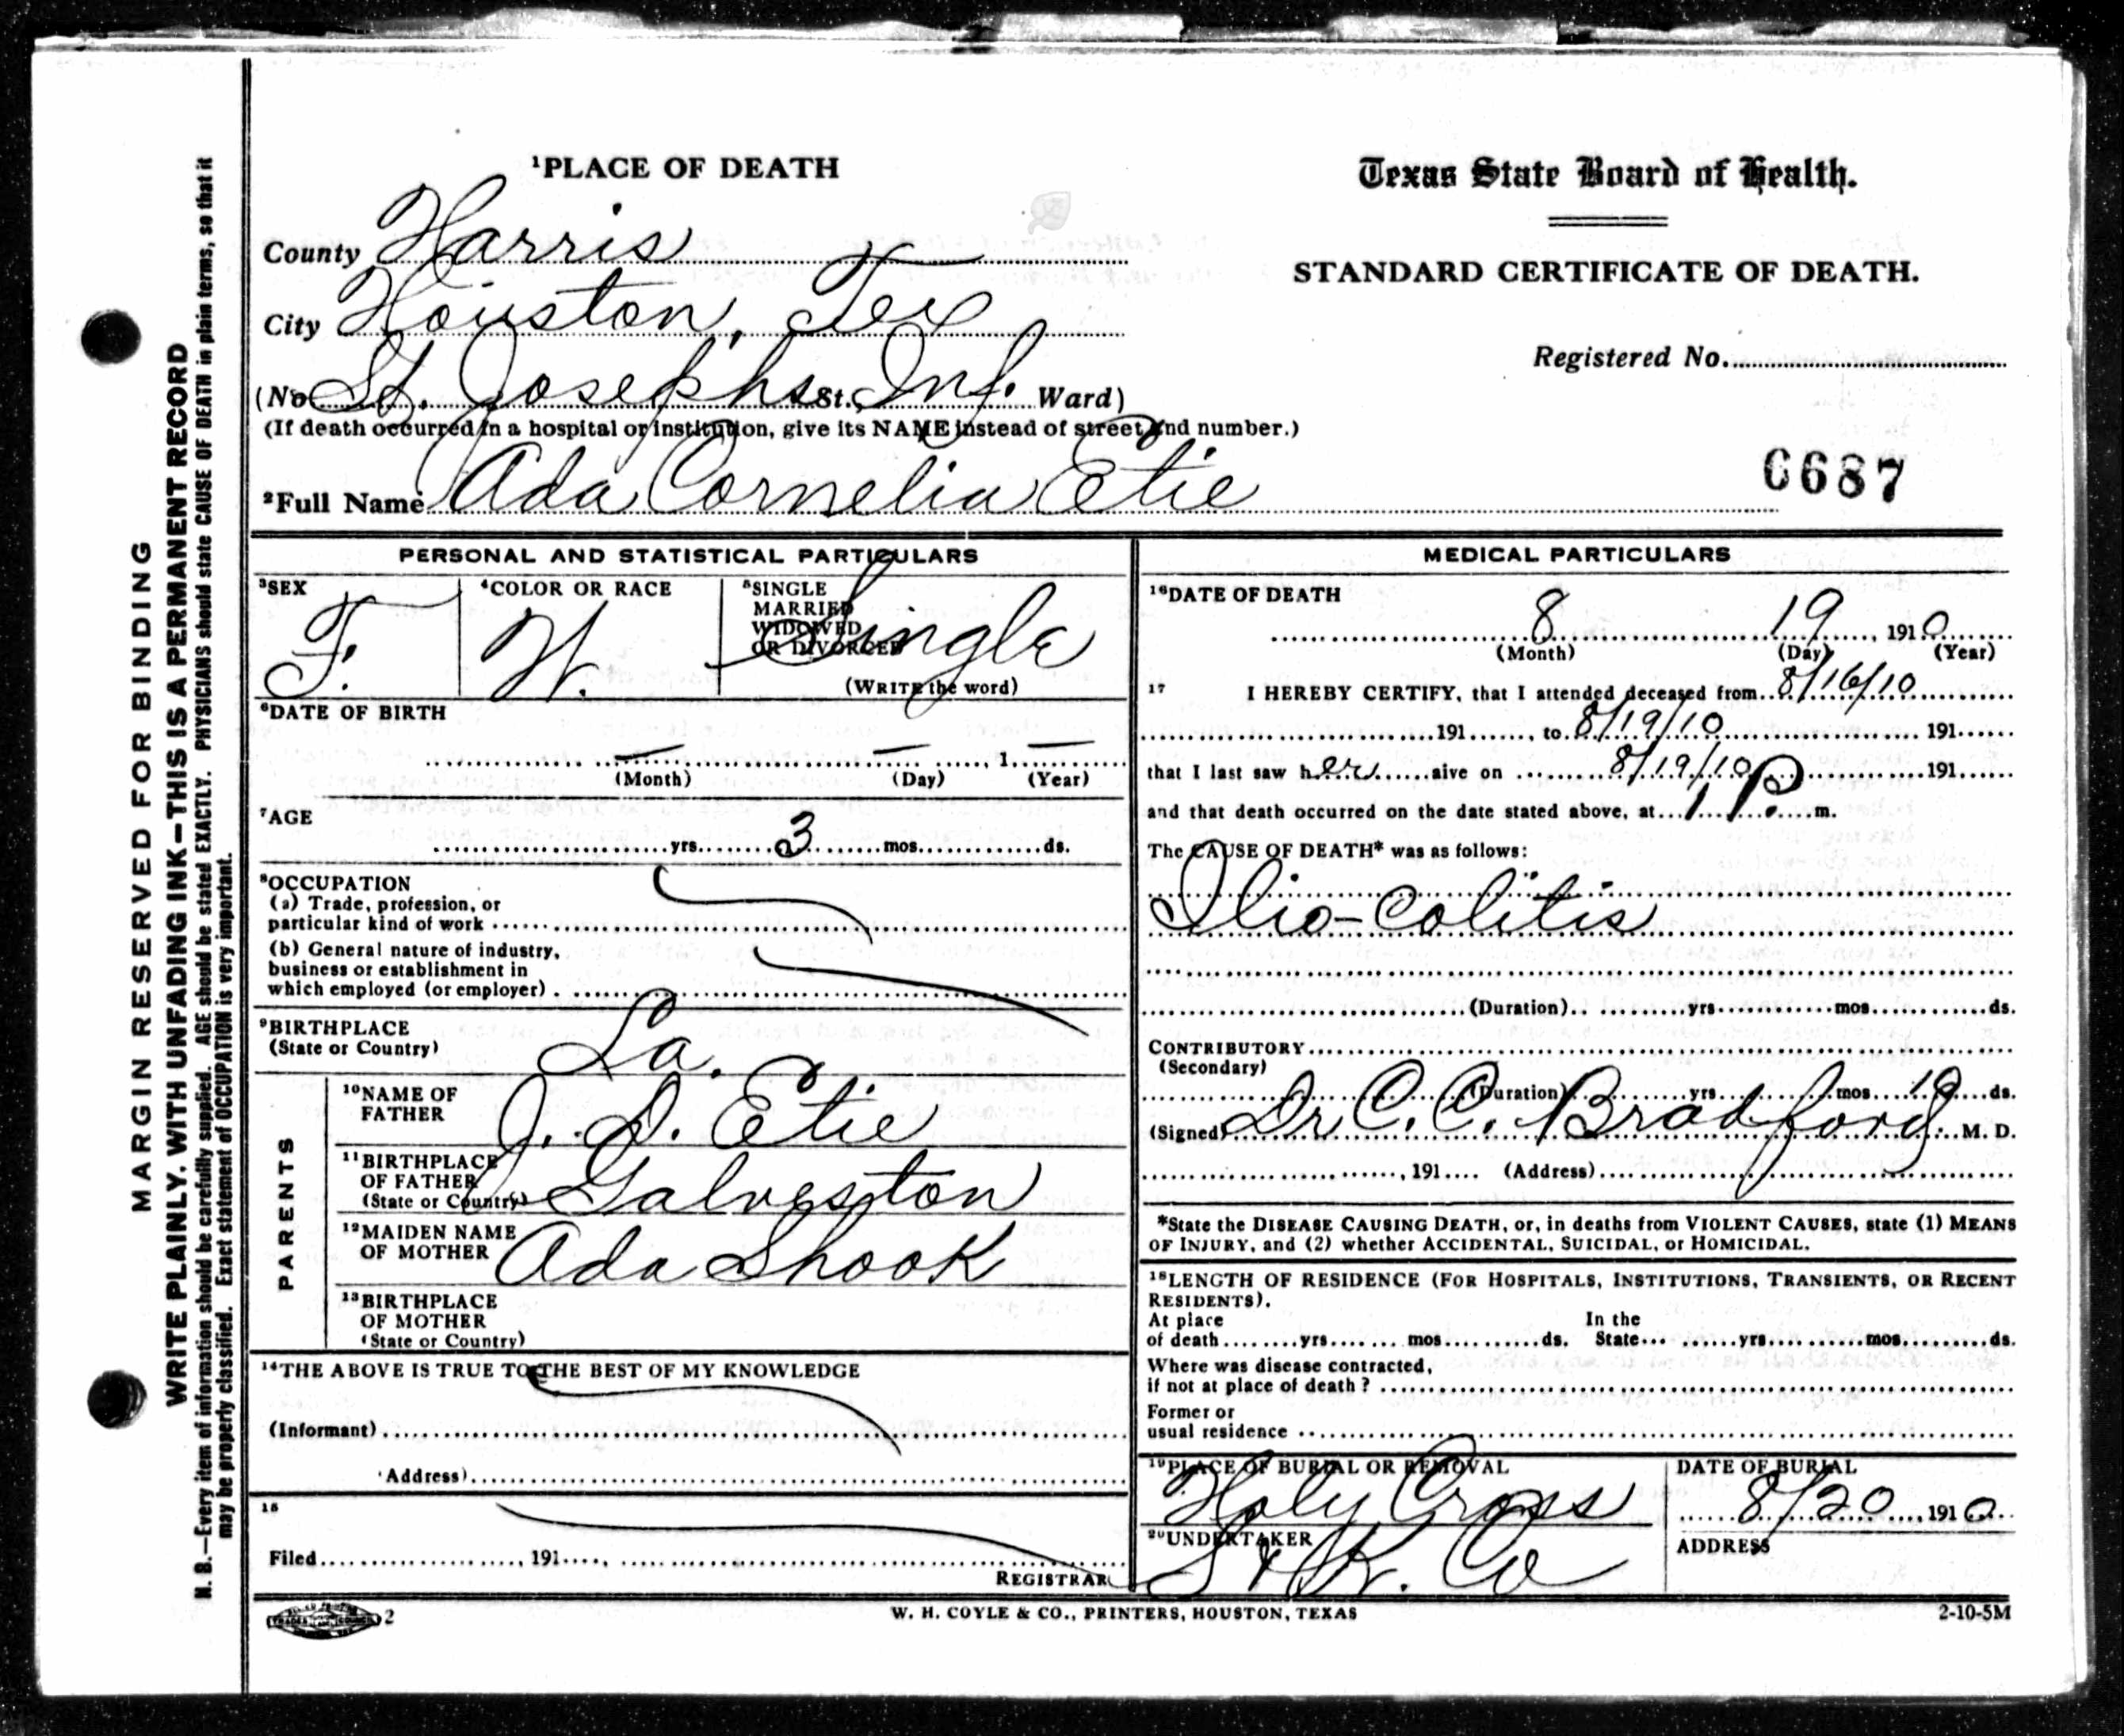 MARGIN RESERVED FOR BINDING
WRITE PLAINLY, WITH UNFADING INK—THIS IS A PERMANENT RECORD
N. B.—Every item of information should be carefully supplied. AGE should be stated EXACTLY. PHYSICIANS should state CAUSE OF DEATH in plain terms, so that it
may be properly classified. Exact statement of OCCUPATION is very important.
¹PLACE OF DEATH
Texas State Board of Health.
STANDARD CERTIFICATE OF DEATH.
County Harris
City Houston, Tex
Registered No.
(No St. Josephs St., Inf. Ward)
(If death occurred in a hospital or institution, give its NAME instead of street and number.)
0687
²Full Name Ada Cornelia Etie
PERSONAL AND STATISTICAL PARTICULARS
³SEX
F.
⁴COLOR OR RACE
W.
⁵SINGLE
MARRIED
WIDOWED
OR DIVORCED
Single
(WRITE the word)
⁶DATE OF BIRTH
— — 1 —
(Month) (Day) (Year)
⁷AGE
yrs. 3 mos. ds.
⁸OCCUPATION
(a) Trade, profession, or
particular kind of work
(b) General nature of industry,
business or establishment in
which employed (or employer)
⁹BIRTHPLACE
(State or Country)
La.
PARENTS
¹⁰NAME OF
FATHER
J. D. Etie
¹¹BIRTHPLACE
OF FATHER
(State or Country)
Galveston
¹²MAIDEN NAME
OF MOTHER
Ada Shook
¹³BIRTHPLACE
OF MOTHER
(State or Country)
¹⁴THE ABOVE IS TRUE TO THE BEST OF MY KNOWLEDGE
(Informant)
(Address)
¹⁵
Filed 191
REGISTRAR
MEDICAL PARTICULARS
¹⁶DATE OF DEATH
8 19, 1910
(Month) (Day) (Year)
¹⁷ I HEREBY CERTIFY, that I attended deceased from 8/16/10
191, to 8/19/10 191
that I last saw her aive on 8/19/10 191
and that death occurred on the date stated above, at 1 P. m.
The CAUSE OF DEATH* was as follows:
Ilio-colitis
(Duration) yrs mos ds.
CONTRIBUTORY
(Secondary)
(Duration) yrs mos 10 ds.
(Signed) Dr C. C. Bradford M. D.
, 191 (Address)
*State the DISEASE CAUSING DEATH, or, in deaths from VIOLENT CAUSES, state (1) MEANS
OF INJURY, and (2) whether ACCIDENTAL, SUICIDAL, or HOMICIDAL.
¹⁸LENGTH OF RESIDENCE (FOR HOSPITALS, INSTITUTIONS, TRANSIENTS, OR RECENT
RESIDENTS).
At place In the
of death yrs mos ds. State yrs mos ds.
Where was disease contracted,
if not at place of death?
Former or
usual residence
¹⁹PLACE OF BURIAL OR REMOVAL
Holy Cross
DATE OF BURIAL
8/20, 1910
²⁰UNDERTAKER
S & K. Co
ADDRESS
2
W. H. COYLE & CO., PRINTERS, HOUSTON, TEXAS
2-10-5M